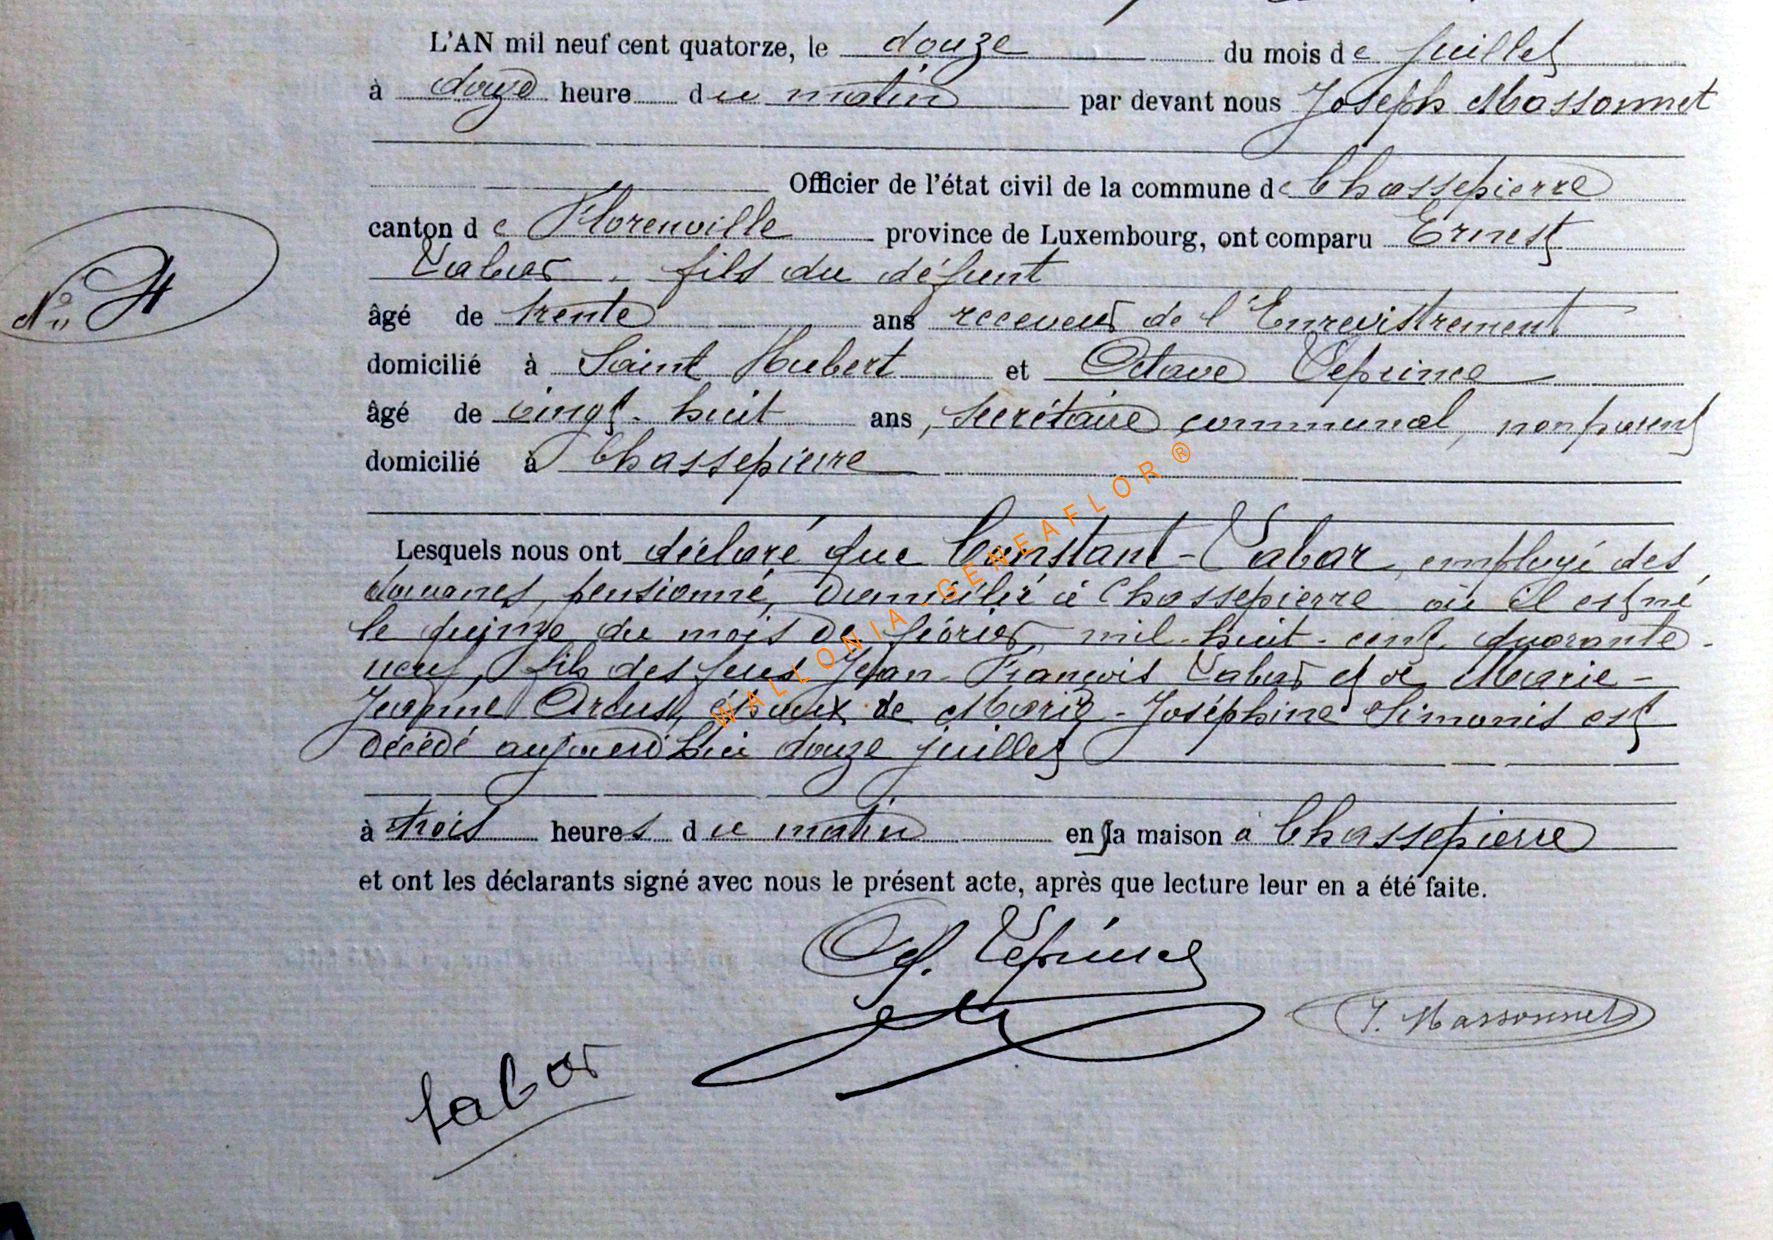 L'AN mil neuf cent quatorze, le douze du mois de juillet
à douze heure du matin par devant nous Joseph Massonnet
Officier de l'état civil de la commune de Chassepierre
canton de Florenville province de Luxembourg, ont comparu Ernest
Labar, fils du défunt
âgé de trente ans receveur de l'Enregistrement
domicilié à Saint Hubert et Octave Leprince
âgé de vingt-huit ans, secrétaire communal, non parent
domicilié à Chassepierre
Lesquels nous ont déclaré que Constant Labar, employé des
douanes, pensionné, domicilié à Chassepierre où il est né
le quinze du mois de février mil-huit-cent-quarante-
neuf, fils des feus Jean-François Labar et de Marie-
Jeanne époux de Marie-Joséphine Simonis est
décédé aujourd'hui douze juillet
à trois heures du matin en sa maison à Chassepierre
et ont les déclarants signé avec nous le présent acte, après que lecture leur en a été faite.
No 4
O. Leprince
J. Massonnet
Labar
WALLONIA-GENEAFLOR ®